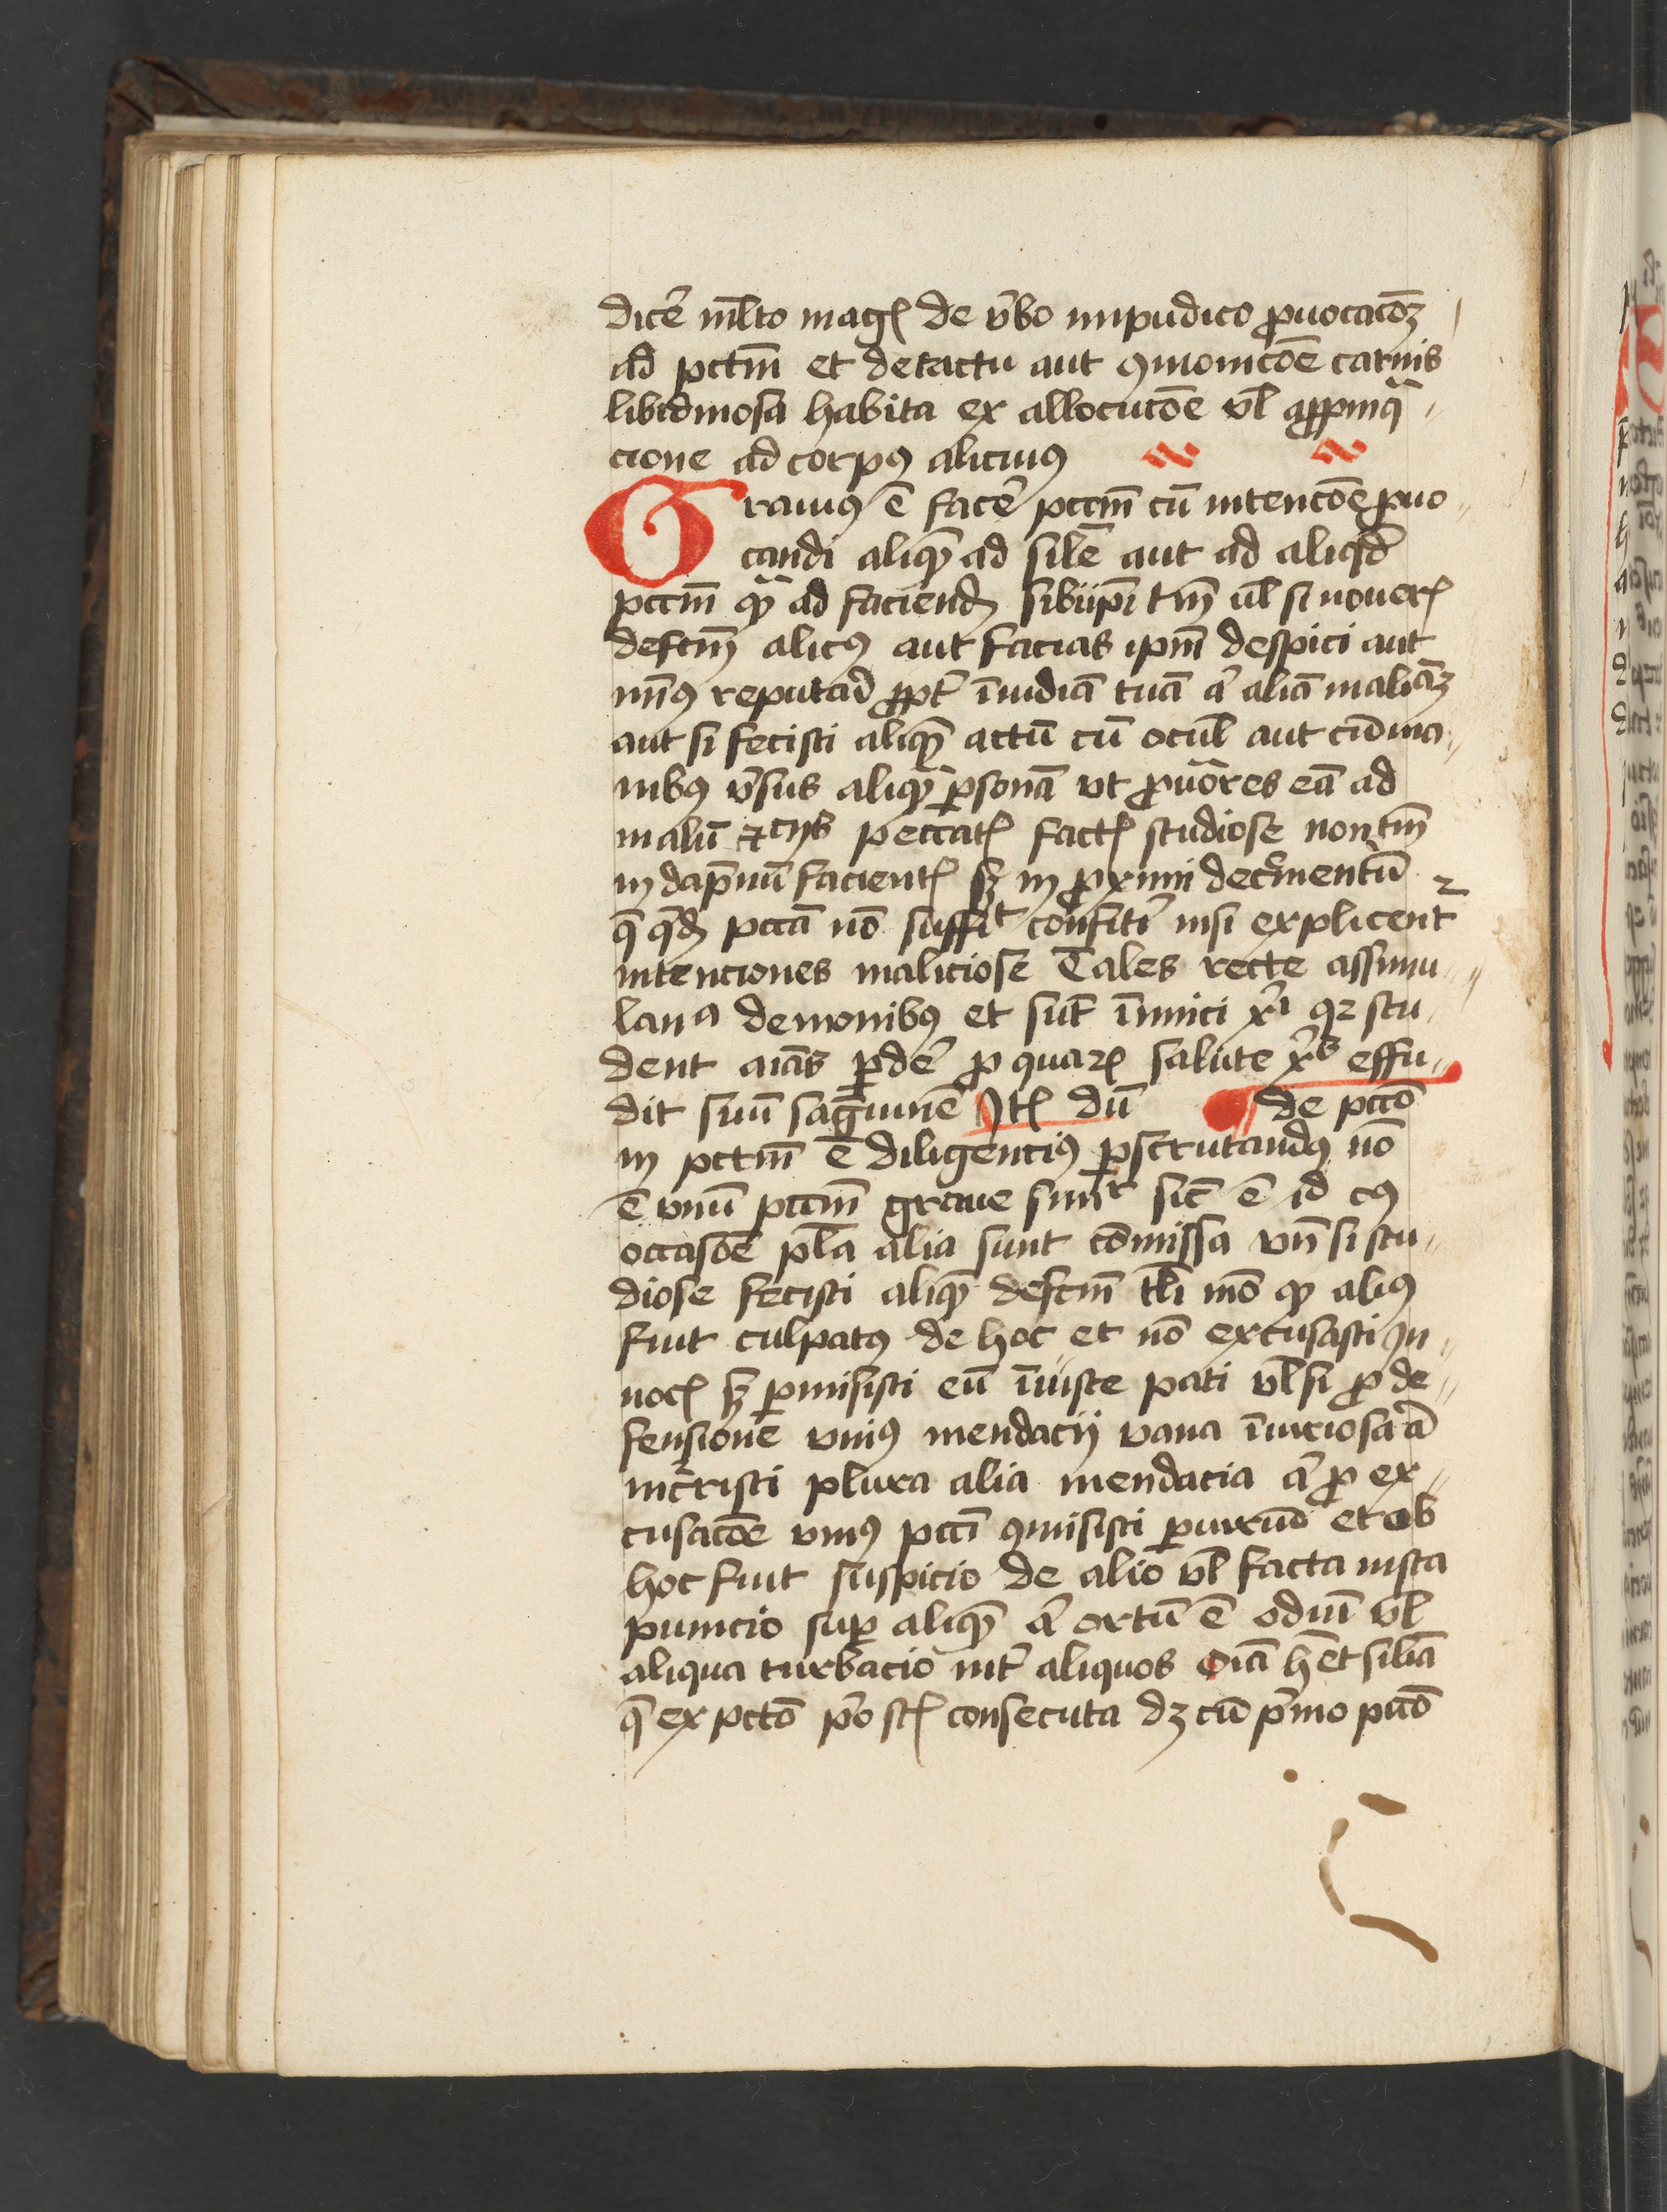 dicē ml̄to magꝭ de v̄bo impudico ꝓuocacōꝫ
ad pctm̄ et de tactu aut ꝯmonicōe carnis
libidinosa habita ex allocucōe vl̄ aꝓpinq̄
cione ad corpꝰ alicuiꝰ
Grauiꝰ ē facē pccm̄ cū intencōe ꝓuo
candi aliqꝫ ad sil̄e aut ad aliqd̄
pccm̄ qꝫ ad faciendꝫ sibiip̄i tm̄ vl̄ si nouerꝭ
defcm̄ alicꝰ aut facias ip̄m despici aut
min̄ꝰ reputari ꝓpt̄ īuidiā tuā a̾ aliā maliāꝫ
aut si fecisti aliqꝫ actū cū ocul̄ aut cū ma
nibꝰ v̄sus aliqꝫ ꝑsonā vt ꝓuōres eā ad
malū ⁊ cijs peccatꝭ factꝭ studiose non tm̄
in dāpnū facientꝭ sꝫ in ꝓximi dec̾mentū
q̄ qdꝫ pccā nō suffit confitī nisi explicent᷑
intenciones maliciose Tales recte assimu
lan᷑ demonibꝰ et sūt īimici xi̾ qꝛ stu
dent aīas ꝑdē ꝓ quaꝝ salute xp̄s effu
dit suū sāguinē Itꝭ dū de pccō
in pctm̄ ē diligenciꝰ ꝑscrutandꝰ nō
ē vnū pccm̄ graue simr̄ sic̄ ē id cꝰ
occasōe pl̄a alia sunt cōmissa vn̄ si stu
diose fecisti aliqꝫ defcm̄ tl̄i mō qꝫ aliꝰ
fuit culpatꝰ de hoc et nō excusasti in
nocꝭ sꝫ ꝑmisisti eū īiuste pati vl̄ si ꝓ de
fensione vniꝰ mendacij vana īiuriosa a̾
incristi plura alia mendacia a̾ ꝓ ex
cusacōe vniꝰ pccī ꝯmisisti ꝑiuriū et ob
hoc fuit suspicio de alio vl̄ facta iusta
punicio suꝑ aliqꝫ a̾ ortū ē odiū vl̄
aliqua turbacio int̄ aliquos oīa hēt silīa
q̄ ex pctō p̄o stꝭ consecuta dꝫ cū p̄mo